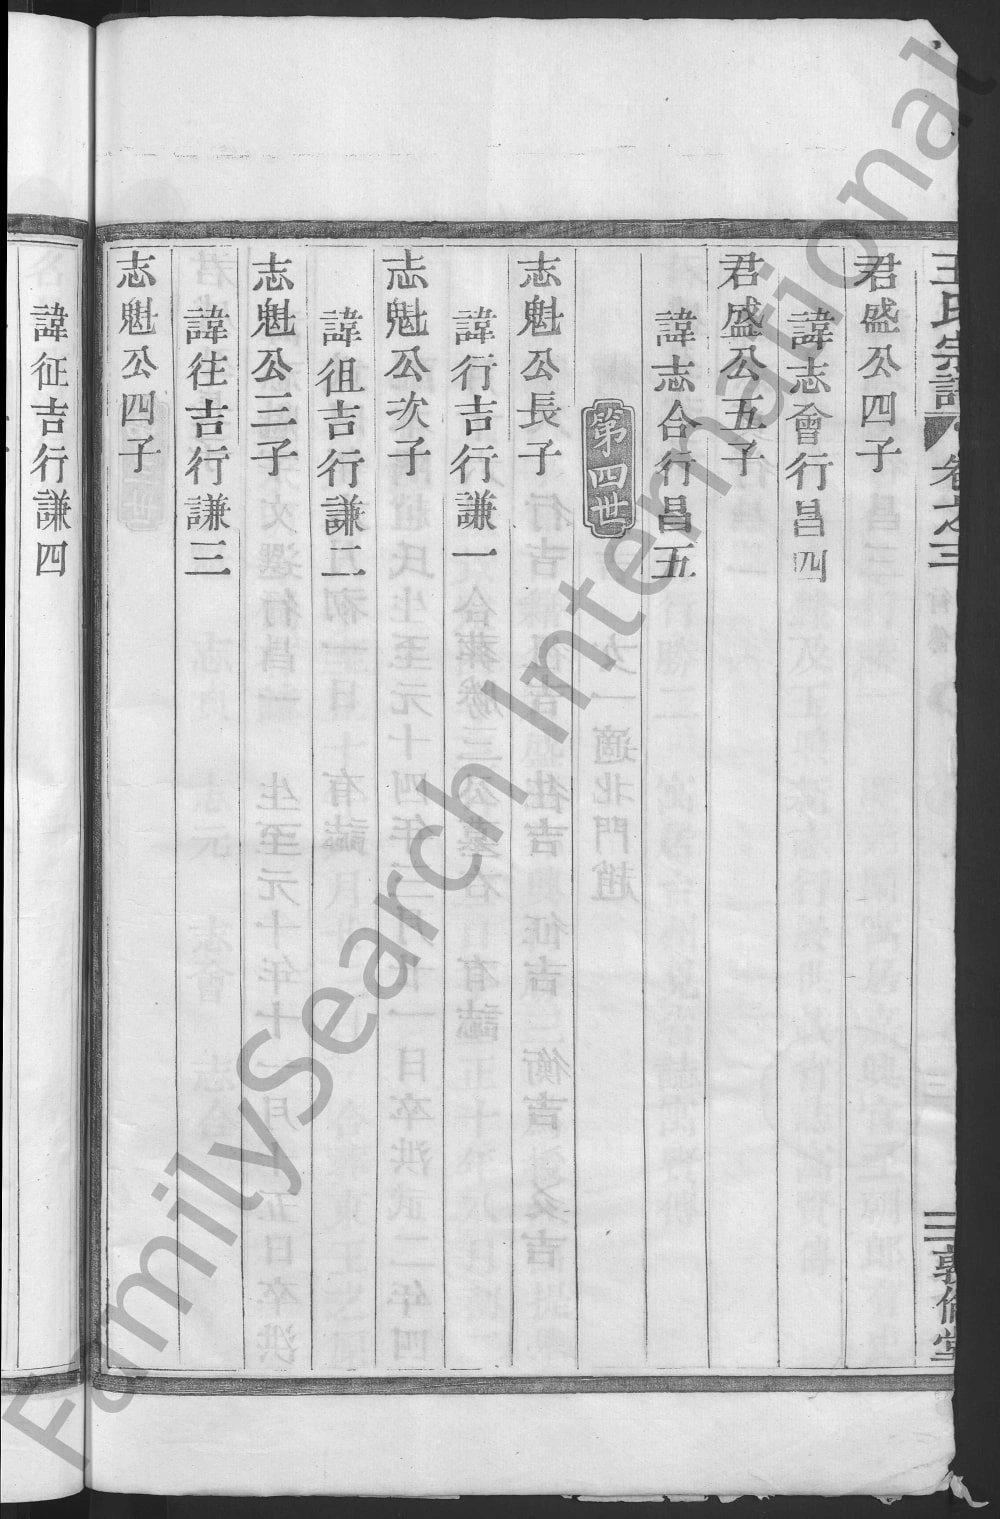 王氏宗譜 卷之三 三 敦倫堂
君盛公四子
諱志會行昌四
君盛公五子
諱志合行昌五
第四世
志魁公長子
諱行吉行謙一
志魁公次子
諱徂吉行謙二
志魁公三子
諱往吉行謙三
志魁公四子
諱征吉行謙四
FamilySearch International